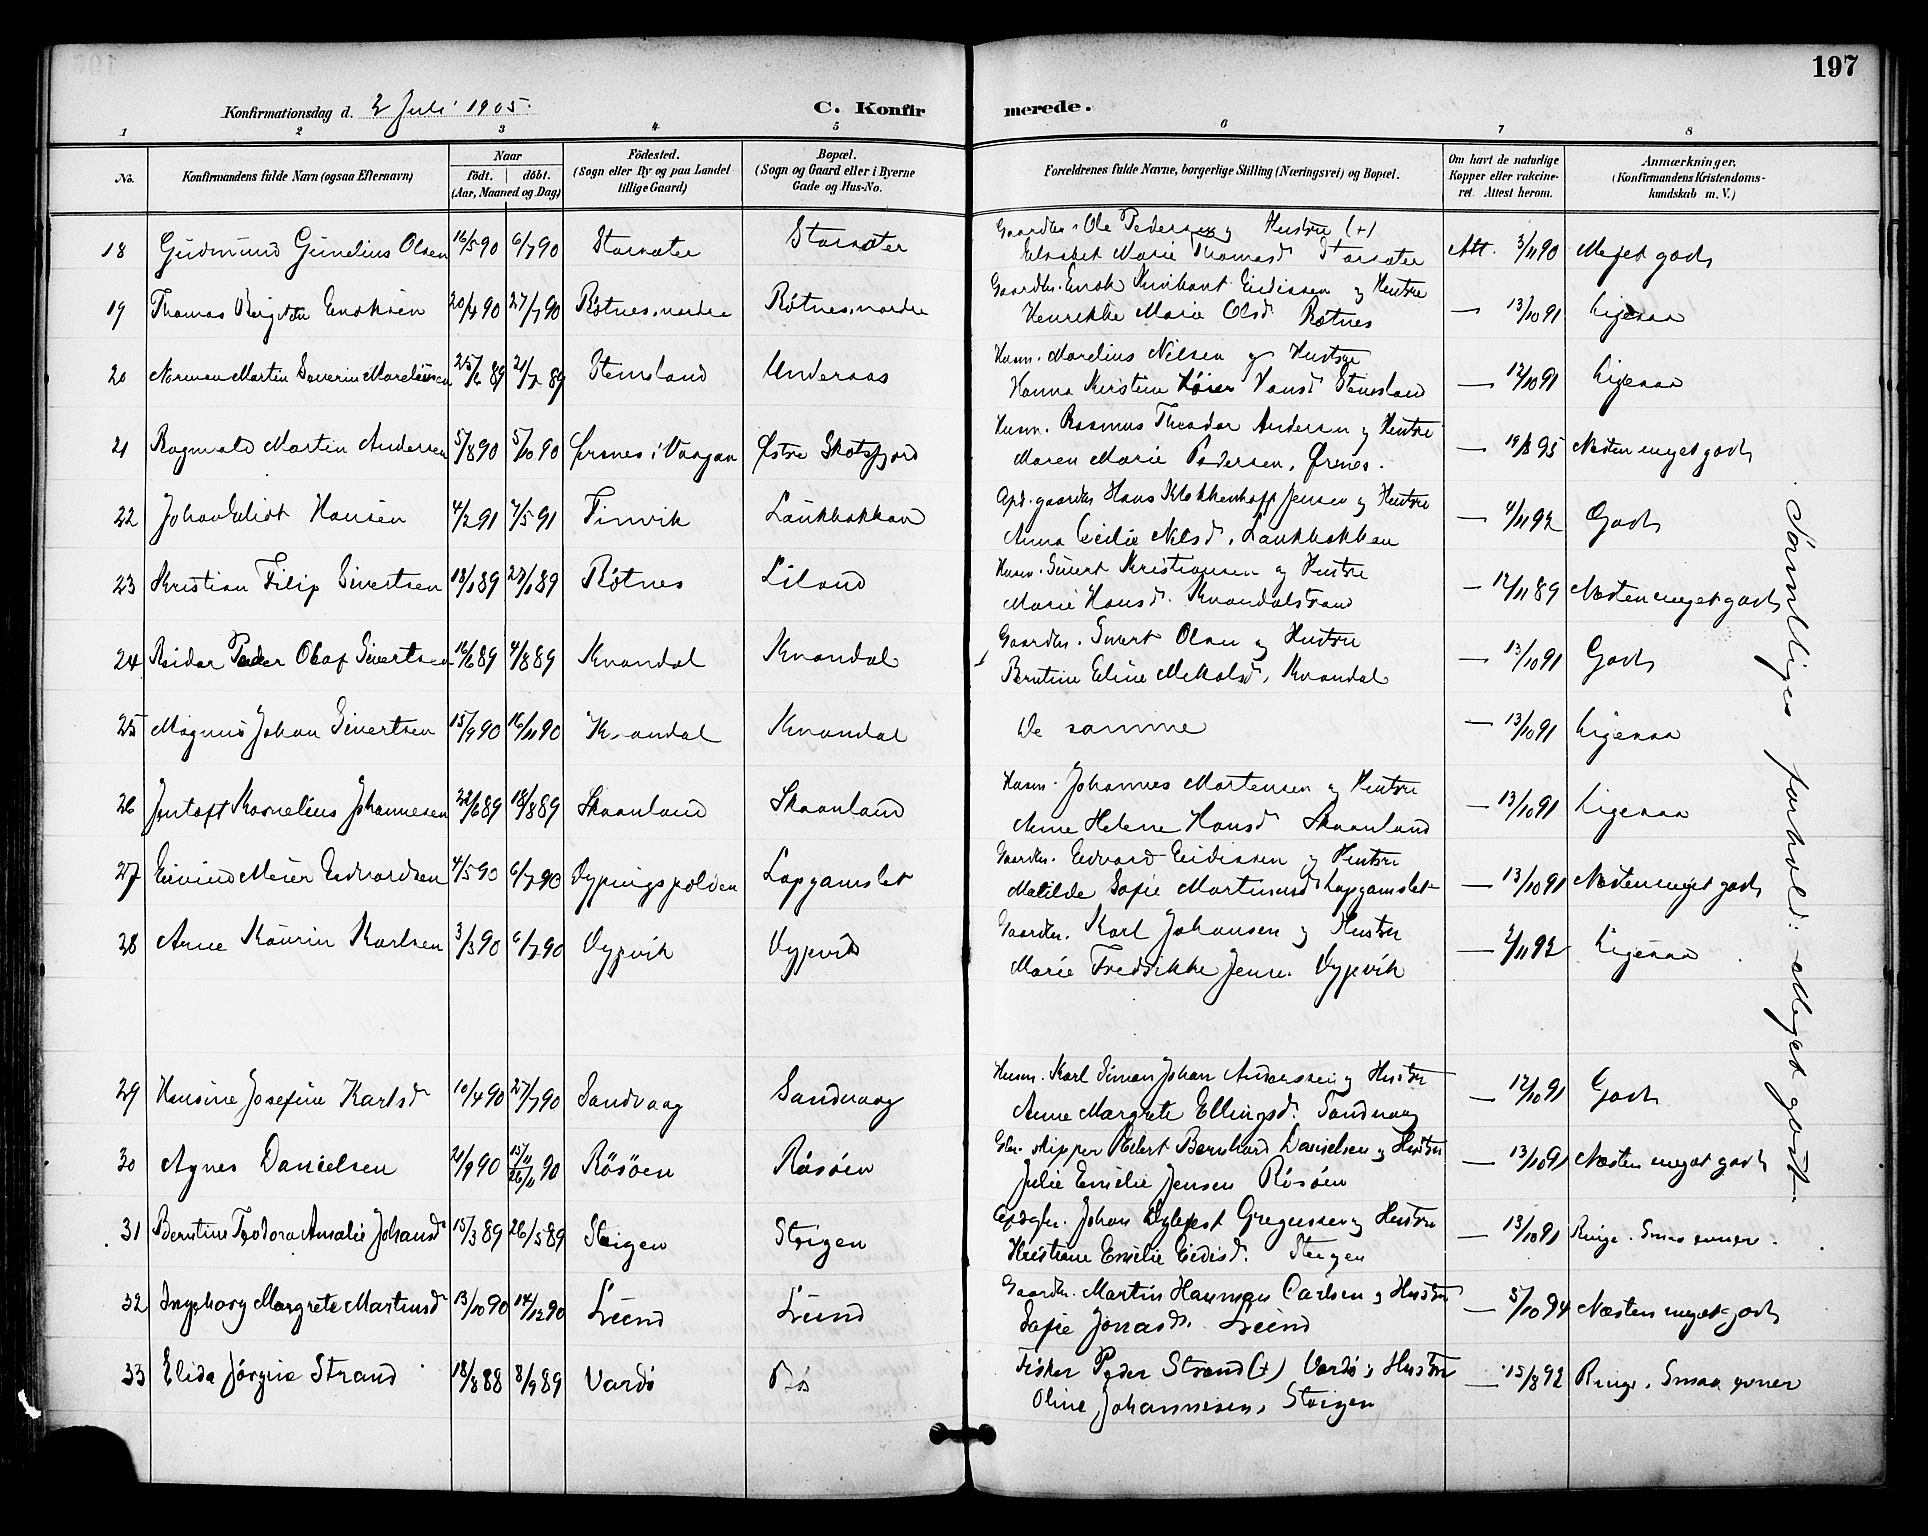 197
Konfirmationsdag d. 2 Juli 1905.
C. Konfirmerede.
1 2 3 4 5 6 7 8
No. Konfirmandens fulde Navn (ogsaa Efternavn) Naar födt. döbt. (Aar, Maaned og Dag) Födested. (Sogn eller By og paa Landet tillige Gaard) Bopæl. (Sogn og Gaard eller i Byerne Gade og Hus-No. Forældrenes fulde Navne, borgerlige Stilling (Næringsvei) og Bopæl. Om havt de naturlige Kopper eller vakcineret. Attest herom. Anmærkninger. (Konfirmandens Kristendomskundskab m. V.)
18 Gudmund Olsen 16/5 90 6/7 90 Storsæter Storsæter Gaardbr. Ole Pedersen og Hustru (+)
Elisabet Marie Thomasd. Storsæter Att. 3/11 90 Meget godt
19 Thomas Enoksen 20/4 90 27/7 90 Røtnes, nordre Røtnes, nordre Gaardbr. Enok Eidissen og Hustru
Henrikke Marie Olsd. Røtnes — 13/10 91 Ligesaa
20 Norman Martin Severin Mareliussen 89 89 Stemsland Underaas Husm. Marelius Nilsen og Hustru
Hanna Kirstine Hansd. Stemsland — 12/10 91 Ligesaa
21 Ragnvald Martin Andersen 5/8 90 5/10 90 Ørsnes i Vaagan Østre Skotsfjord Husm. Rasmus Theodor Andersen og Hustru
Maren Marie Pedersen, Ørsnes. — 95 Næsten meget godt
22 Johan Hansen 4/2 91 7/5 91 Finvik Laukbakkan Opd. gaardbr. Hans Klokkenhoff Jensen og Hustru
Anna Cecilie Nilsd., Laukbakkan — 4/11 92 Godt
23 Kristian Filip Sivertsen 89 89 Røtnes Liland Husm. Sivert Kristiansen og Hustru
Marie Hansd. Kvandalstrand — 12/11 89 Næsten meget godt
24 Reidar Peder Olaf Sivertsen 16/6 89 4/8 89 Kvandal Kvandal Gaardbr. Sivert Olsen og Hustru
Berntine Eline Nikolsd., Kvandal — 13/10 91 Godt
25 Magnus Johan Sivertsen 15/9 90 16/11 90 Kvandal Kvandal De samme — 13/10 91 Ligesaa
26 Jentoft Kornelius Johannesen 22/6 89 18/8 89 Skaanland Skaanland Husm. Johannes Mortensen og Hustru
Anne Helene Hansd. Skaanland — 13/10 91 Ligesaa
27 Eivind Meier Edvardsen 4/5 90 6/7 90 Vypningspolden Lapgamslet Gaardbr. Edvard Eidissen og Hustru
Matilde Sofie Martinusd. Lapgamslet — 13/10 91 Næsten meget godt
28 Anne Kaurin Karlsen 3/3 90 6/7 90 Vypvik Vypvik Gaardbr. Karl Johansen og Hustru
Marie Fredrikke Jens. Vypvik — 2/11 92 Ligesaa
29 Hansine Josefine Karlsd. 10/4 90 27/7 90 Sandvaag Sandvaag Husm. Karl Simon Johan Anderssen og Hustru
Anne Margrete Ellingsd. Sandvaag — 12/10 91 Godt
30 Agnes Danielsen 21/9 90 15/11 26/11 90 Røsøen Røsøen skipper Bernhard Danielsen og Hustru
Julie Emelie Jensen Røsøen — 13/10 91 Næsten meget godt
31 Berntine Teodora Amalie Johansd. 15/3 89 26/5 89 Steigen Steigen Johan Gregussen og Hustru
Kristiane Emelie Eidisd. Steigen — 13/10 91 Ringe. Smaa evner.
32 Ingeborg Margrete Martinsd. 13/10 90 14/12 90 Leind Leind Gaardbr. Martin Hauman Carlsen og Hustru
Sofie Jonasd. Leind — 5/10 94 Næsten meget godt
33 Elida Jørgine Strand 18/8 88 8/9 89 Vardø Bø Fisker Peder Strand (+) Vardø og Hustru
Oline Johannesen, Steigen — 15/8 92 Ringe, Smaa evner
Samtliges forhold: - Meget godt -